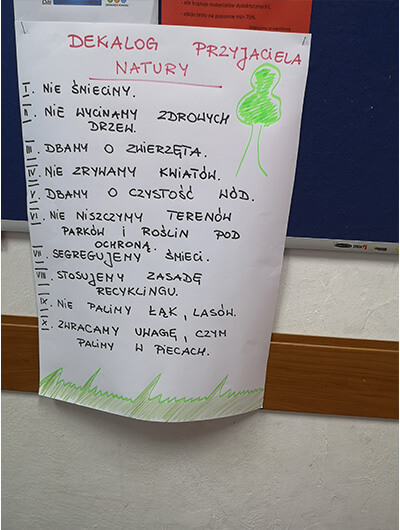 DEKALOG PRZYJACIELA
NATURY
I. NIE ŚMIECIMY.
II. NIE WYCINAMY ZDROWYCH
DRZEW.
III. DBAMY O ZWIERZĘTA.
IV. NIE ZRYWAMY KWIATÓW.
V. DBAMY O CZYSTOŚĆ WÓD.
VI. NIE NISZCZYMY TERENÓW
PARKÓW I ROŚLIN POD
OCHRONĄ.
VII. SEGREGUJEMY ŚMIECI.
VIII. STOSUJEMY ZASADĘ
RECYKLINGU.
IX. NIE PALIMY ŁĄK, LASÓW.
X. ZWRACAMY UWAGĘ, CZYM
PALIMY W PIECACH.